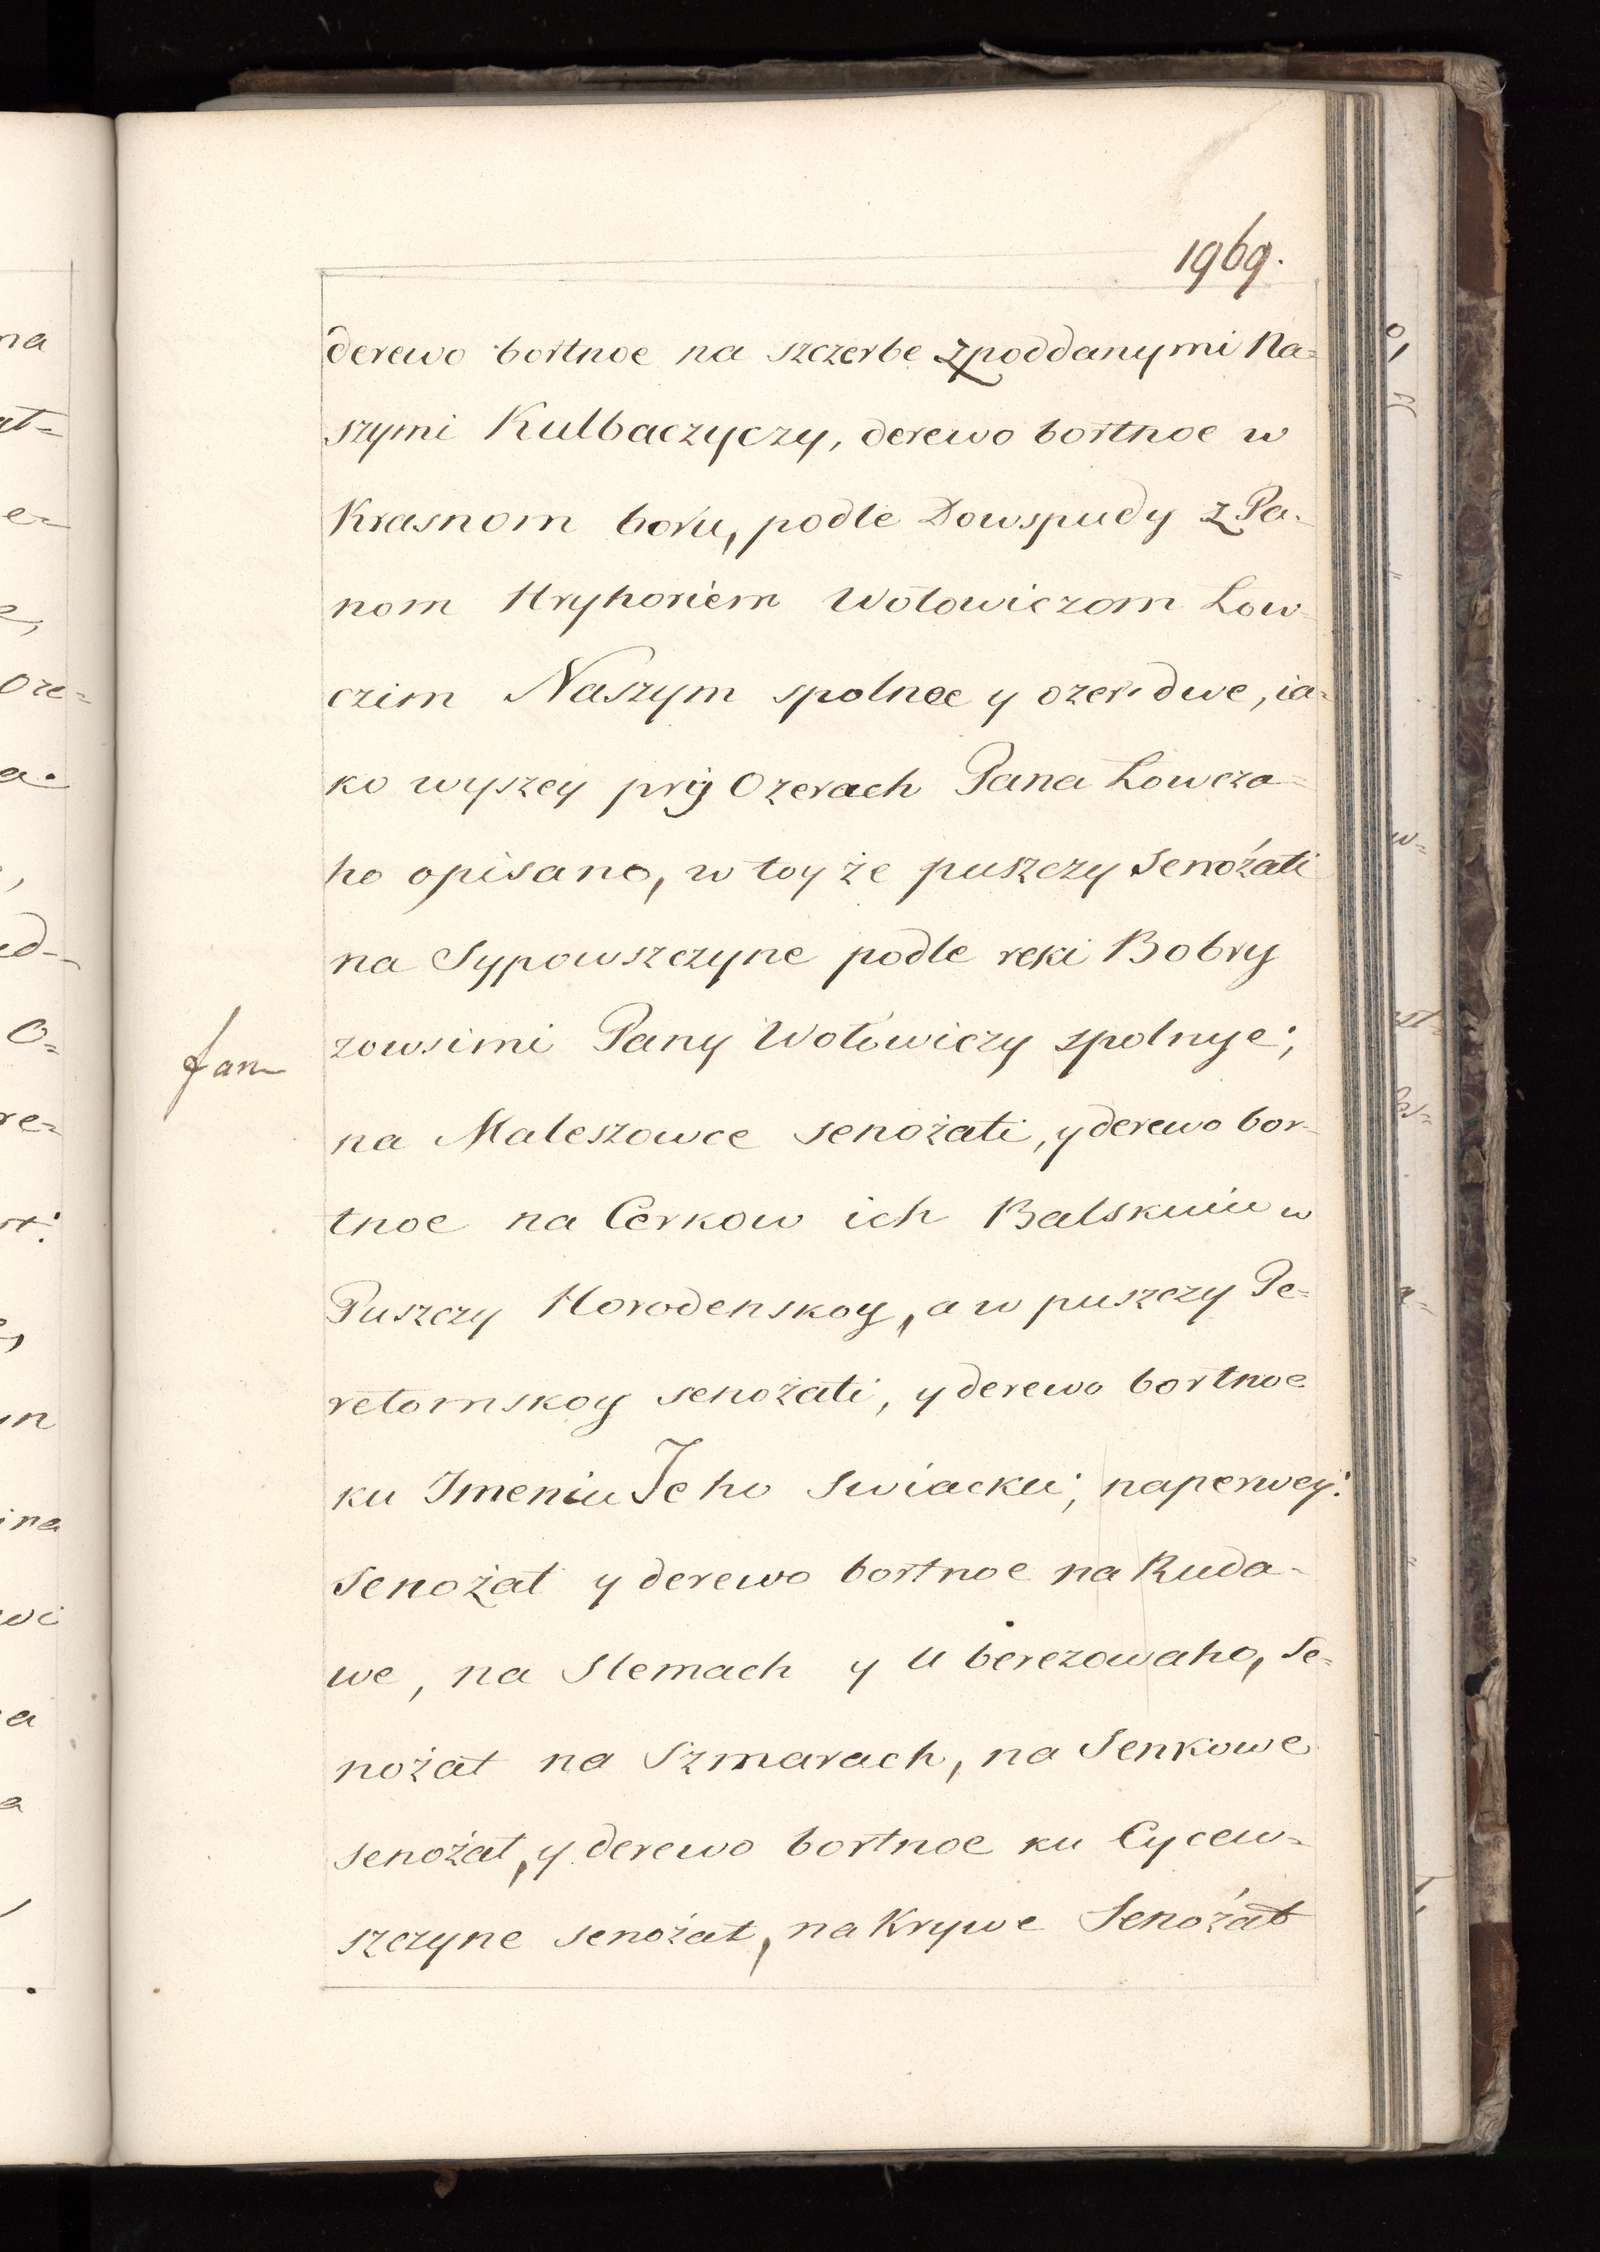 1969.
derewo bortnoe na szczerbe zpoddanymi Na=
szymi Kulbaczyczy, derewo bortnoe w
Krasnom boru, podle Dowspudy z Pa-
nom Hryhoriem Wołowiczom Łow-
czim Naszym spolnoe y ozera dwe, ia=
ko wyszey prij Ozerach Pana Łowcza=
ho opisano, w toy że puszczy Senożati
na Sypowszczyne podle reki Bobry
zowsimi Pany Wołowiczy spolnye;
na Maleszowce senożati, y derewo bor-
tnoe na Cerkow ich Balskuiu w
Puszczy Horodenskoy, a w puszczy Pe=
retomskoy senożati, y derewo bortnoe
ku Imeniu Jeho Swiacku; naperwey:
Senożat y derewo bortnoe na Ruda-
we, na Slemach y U berezowaho, Se=
nożat na Szmarach, na Senkowe
senożat, y derewo bortnoe ku Cycew=
szczyne senożat, na Krywe Senożat